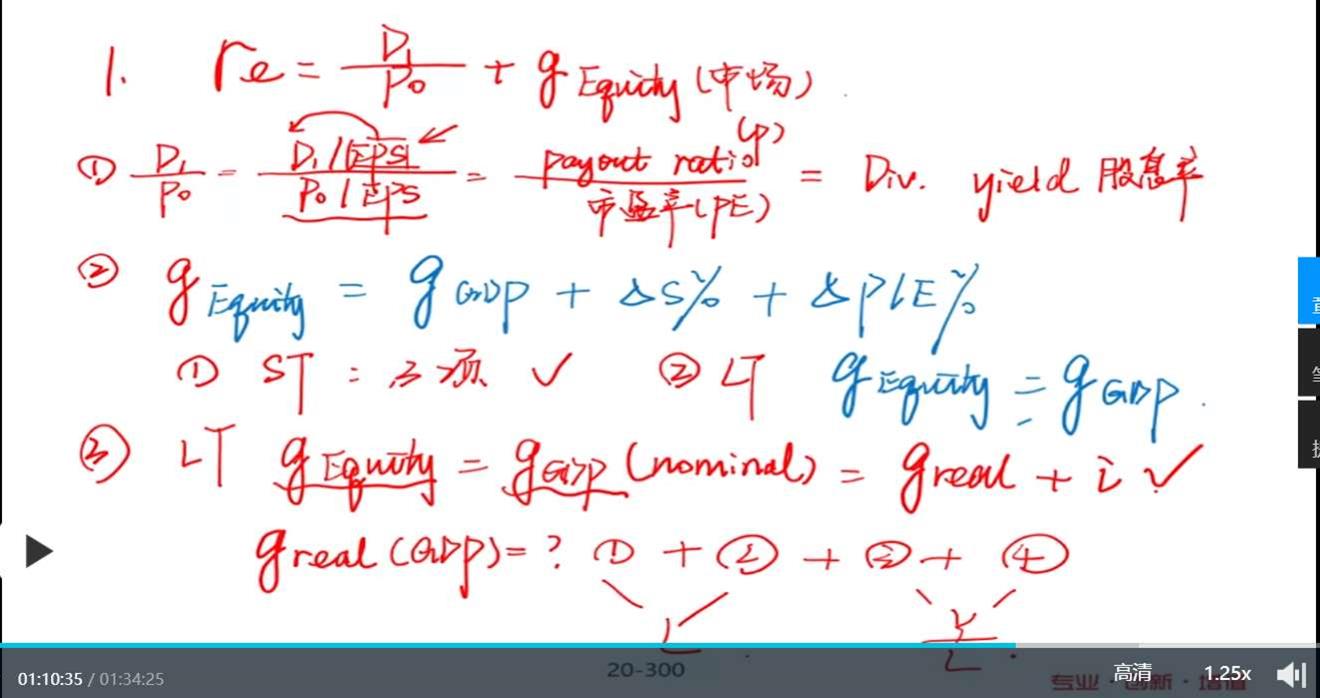 1. re = D1/P0 + g Equity (市场)
① D1/P0 = (D1/EPS1)/(P0/EPS) = payout ratio (p)/市盈率(PE) = Div. yield 股息率
② g Equity = g GDP + ΔS% + ΔP/E%
① ST : 三项 ✓ ② LT g Equity = g GDP.
③ LT g Equity = g GDP (nominal) = g real + i ✓
g real (GDP) = ? ① + ② + ③ + ④
L K/L
20-300
01:10:35 / 01:34:25
高清 1.25x
专业·创新·增值